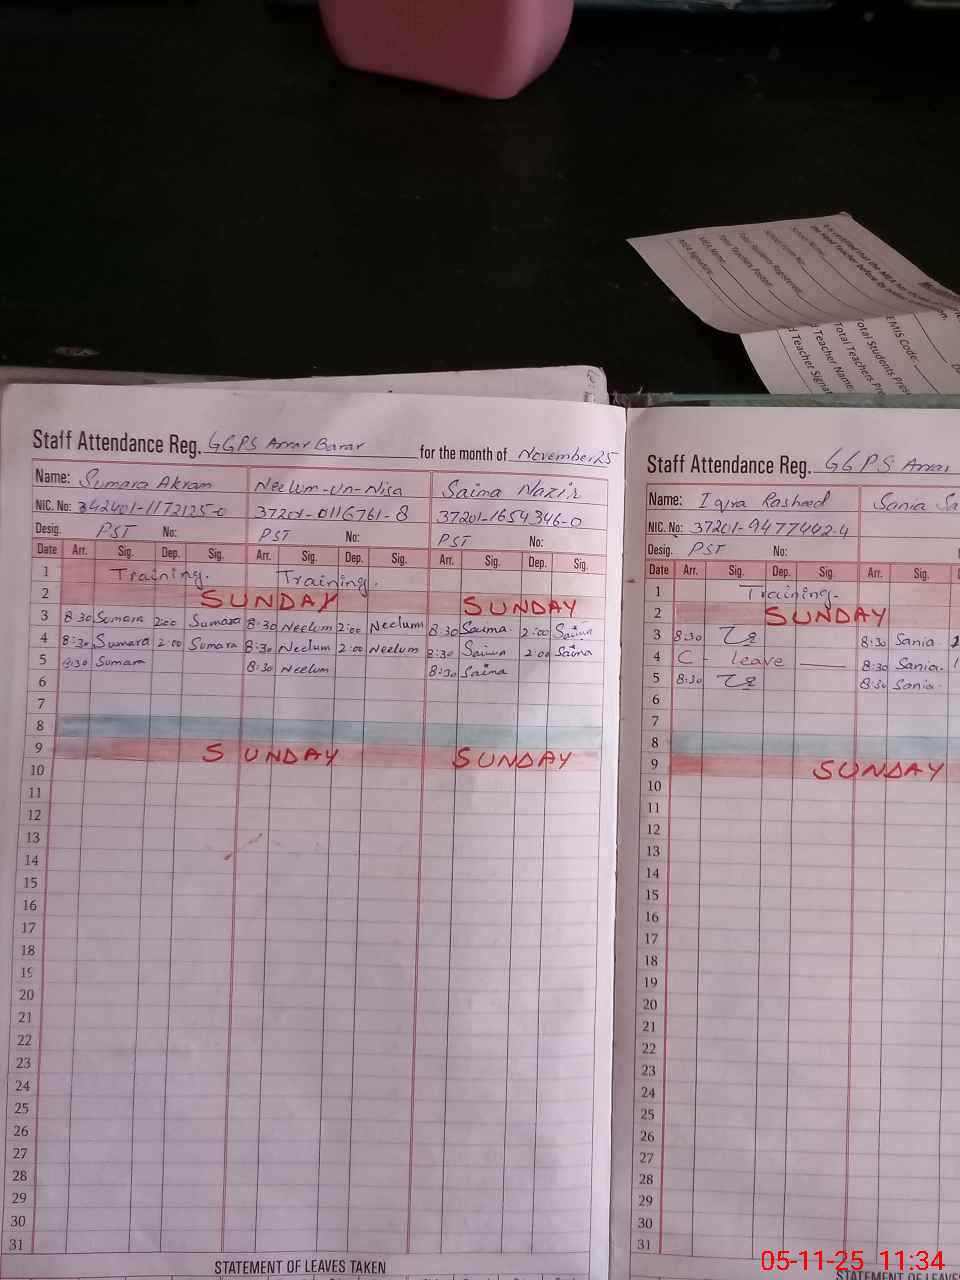 Staff Attendance Reg. GGPS Arrar Barar for the month of November 25
Name: Sumara Akram Neelum-un-Nisa Saima Nazir
NIC. No: 342401-1172125-0 37201-0116761-8 37201-1654346-0
Desig. PST No: PST No: PST No:
Date Arr. Sig. Dep. Sig. Arr. Sig. Dep. Sig. Arr. Sig. Dep. Sig.
1 Training. Training.
2 SUNDAY SUNDAY
3 8:30 Sumara 2:00 Sumara 8:30 Neelum 2:00 Neelum 8:30 Saima. 2:00 Saima
4 8:30 Sumara 2:00 Sumara 8:30 Neelum 2:00 Neelum 8:30 Saima 2:00 Saima
5 8:30 Sumara 8:30 Neelum 8:30 Saima
6
7
8
9 SUNDAY SUNDAY
10
11
12
13
14
15
16
17
18
19
20
21
22
23
24
25
26
27
28
29
30
31
STATEMENT OF LEAVES TAKEN
Staff Attendance Reg. GGPS Arrar
Name: Iqra Rasheed Sania
NIC. No: 37201-9477442-4
Desig. PST No:
Date Arr. Sig. Dep. Sig. Arr. Sig.
1 Training.
2 SUNDAY
3 8:30 8:30 Sania
4 C - leave 8:30 Sania.
5 8:30 8:30 Sania.
6
7
8
9 SUNDAY
10
11
12
13
14
15
16
17
18
19
20
21
22
23
24
25
26
27
28
29
30
31
STATEMENT OF LEAVES
MEA Name:
MEA Signature:
Total Teachers Posted:
Total Students Registered:
School Name:
EMIS Code:
Total Students
Total Teachers
Teacher Name:
05-11-25 11:34